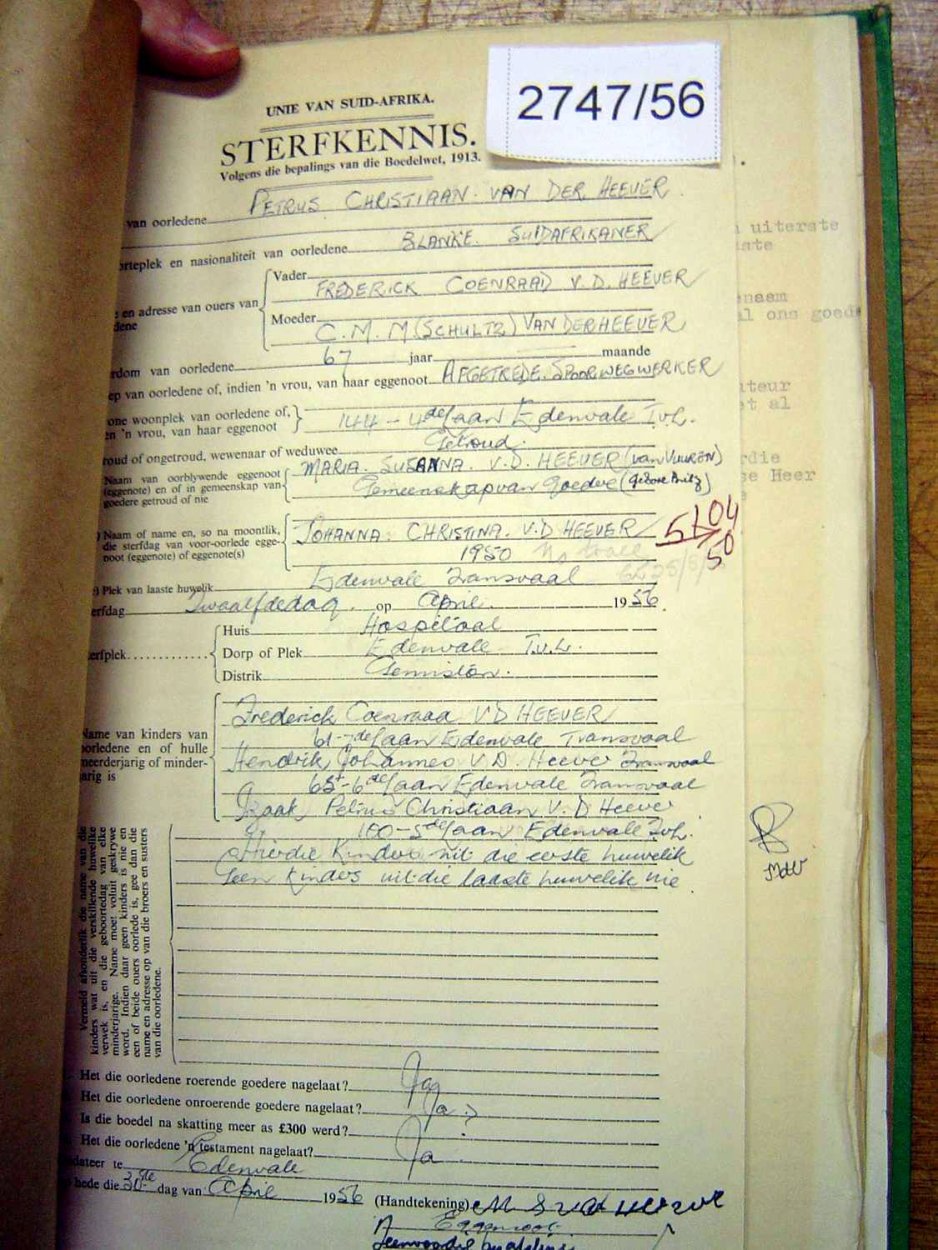 2747/56
UNIE VAN SUID-AFRIKA.
STERFKENNIS.
Volgens die bepalings van die Boedelwet, 1913.
van oorledene PETRUS CHRISTIAAN VAN DER HEEVER
orteplek en nasionaliteit van oorledene BLANKE SUIDAFRIKANER
e en adresse van ouers van
dene
Vader
FREDERICK COENRAAD V.D. HEEVER
Moeder
C.M.M (SCHULTZ) VAN DER HEEVER
rdom van oorledene 67 jaar maande
ep van oorledene of, indien 'n vrou, van haar eggenoot AFGETREDE SPOORWEGWERKER
one woonplek van oorledene of,
en 'n vrou, van haar eggenoot
144 - 4de Laan Edenvale Tvl.
roud of ongetroud, wewenaar of weduwee Getroud.
Naam van oorblywende eggenoot
(eggenote) en of in gemeenskap van
goedere getroud of nie
MARIA SUSANNA V.D. HEEVER (van VUUREN)
Gemeenskap van Goedere (gebore Britz)
) Naam of name en, so na moontlik,
die sterfdag van voor-oorlede egge-
noot (eggenote) of eggenote(s)
JOHANNA CHRISTINA V.D HEEVER
1950 No trace
5104
50
) Plek van laaste huwelik Edenvale Transvaal
erfdag Twaalfdedag op April 1956.
erfplek
Huis Hospitaal
Dorp of Plek Edenvale T.v.L.
Distrik Germiston.
Name van kinders van
oorledene en of hulle
meerderjarig of minder-
jarig is
Frederick Coenraad V.D HEEVER
61-7de Laan Edenvale Transvaal
Hendrik Johannes V.D. Heever Transvaal
65-6de Laan Edenvale Transvaal
Izaak Petrus Christiaan V.D Heever
100-5de Laan Edenvale Tvl.
Hierdie Kinders uit die eerste huwelik
Geen Kinders uit die laaste huwelik nie
Vermeld afsonderlik die name van die
kinders wat uit die verskillende huwelike
verwek is, en die geboortedag van elke
minderjarige. Name moet voluit geskrywe
word. Indien daar geen kinders is nie en
een of beide ouers oorlede is, gee dan die
name en adresse op van die broers en susters
van die oorledene.
Het die oorledene roerende goedere nagelaat? Ja
Het die oorledene onroerende goedere nagelaat? Ja
Is die boedel na skatting meer as £300 werd?
Het die oorledene 'n testament nagelaat? Ja
dateer te Edenvale
hede die 30ste dag van April 1956 (Handtekening) M S v d Heever
Eggenoot
n uiterste
enaam
al ons goed
uteur
et al
rdie
se Heer